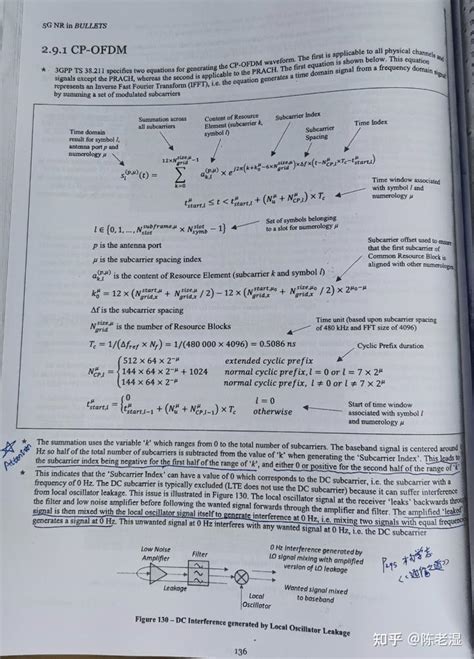 5G NR in BULLETS
2.9.1 CP-OFDM
★ 3GPP TS 38.211 specifies two equations for generating the CP-OFDM waveform. The first is applicable to all physical channels and
signals except the PRACH, whereas the second is applicable to the PRACH. The first equation is shown below. This equation
represents an Inverse Fast Fourier Transform (IFFT), i.e. the equation generates a time domain signal from a frequency domain signal
by summing a set of modulated subcarriers
Time domain
result for symbol l,
antenna port p and
numerology μ
Summation across
all subcarriers
Content of Resource
Element (subcarrier k,
symbol l)
Subcarrier Index
Subcarrier
Spacing
Time Index
s_l^(p,μ)(t) = Σ_{k=0}^{12×N_grid^size,μ −1} a_k,l^(p,μ) × e^{j2π(k+k_0^μ−6×N_grid^size,μ)×Δf×(t−N_CP,l^μ×T_c−t_start,l^μ)}
t_start,l^μ ≤ t < t_start,l^μ + (N_u^μ + N_CP,l^μ) × T_c
Time window associated
with symbol l and
numerology μ
l ∈ {0, 1, ..., N_slot^subframe,μ × N_symb^slot − 1}
Set of symbols belonging
to a slot for numerology μ
p is the antenna port
μ is the subcarrier spacing index
a_k,l^(p,μ) is the content of Resource Element (subcarrier k and symbol l)
Subcarrier offset used to ensure
that the first subcarrier of
Common Resource Block is
aligned with other numerologies
k_0^μ = 12 × (N_grid,x^start,μ + N_grid,x^size,μ / 2) − 12 × (N_grid,x^start,μ0 + N_grid,x^size,μ0 / 2) × 2^μ0−μ
Δf is the subcarrier spacing
N_grid^size,μ is the number of Resource Blocks
Time unit (based upon subcarrier spacing
of 480 kHz and FFT size of 4096)
T_c = 1/(Δf_ref × N_f) = 1/(480 000 × 4096) = 0.5086 ns
Cyclic Prefix duration
N_CP,l^μ = { 512 × 64 × 2^−μ extended cyclic prefix
144 × 64 × 2^−μ + 1024 normal cyclic prefix, l = 0 or l = 7 × 2^μ
144 × 64 × 2^−μ normal cyclic prefix, l ≠ 0 or l ≠ 7 × 2^μ
t_start,l^μ = { 0 l = 0
t_start,l−1^μ + (N_u^μ + N_CP,l−1^μ) × T_c otherwise
Start of time window
associated with symbol l
and numerology μ
Attention
★ The summation uses the variable 'k' which ranges from 0 to the total number of subcarriers. The baseband signal is centered around 0
Hz so half of the total number of subcarriers is subtracted from the value of 'k' when generating the 'Subcarrier Index'. This leads to
the subcarrier index being negative for the first half of the range of 'k', and either 0 or positive for the second half of the range of 'k'
★ This indicates that the 'Subcarrier Index' can have a value of 0 which corresponds to the DC subcarrier, i.e. the subcarrier with a
frequency of 0 Hz. The DC subcarrier is typically excluded (LTE does not use the DC subcarrier) because it can suffer interference
from local oscillator leakage. This issue is illustrated in Figure 130. The local oscillator signal at the receiver 'leaks' backwards through
the filter and low noise amplifier before following the wanted signal forwards through the amplifier and filter. The amplified 'leaked'
signal is then mixed with the local oscillator signal itself to generate interference at 0 Hz, i.e. mixing two signals with equal frequency
generates a signal at 0 Hz. This unwanted signal at 0 Hz interferes with any wanted signal at 0 Hz, i.e. the DC subcarrier
Low Noise
Amplifier
Filter
Leakage
Local
Oscillator
0 Hz interference generated by
LO signal mixing with amplified
version of LO leakage
Wanted signal mixed
to baseband
Figure 130 – DC Interference generated by Local Oscillator Leakage
136
知乎 @陈老湿